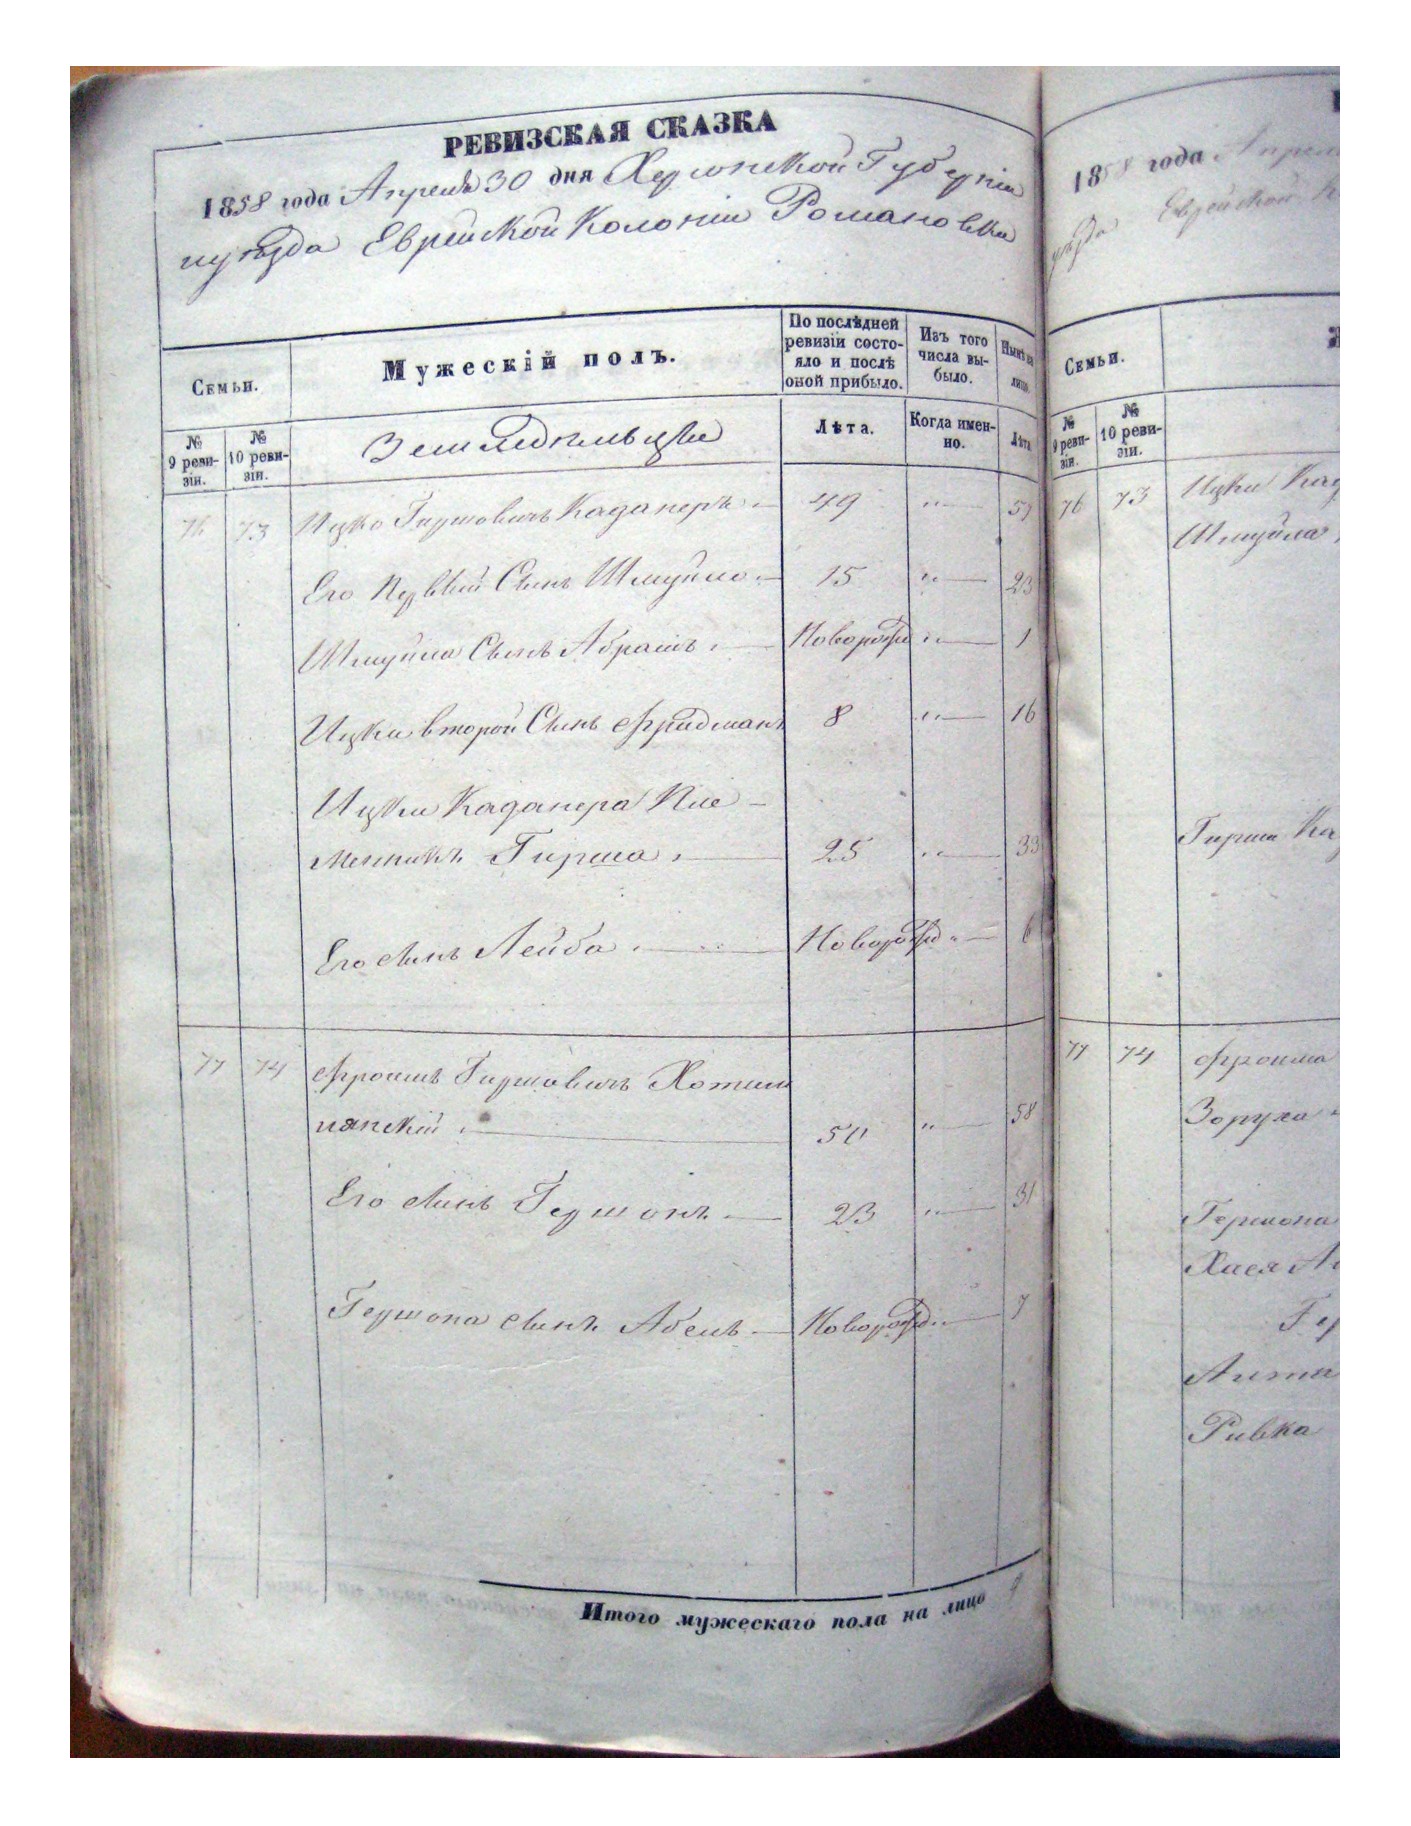 РЕВИЗСКАЯ СКАЗКА
1858 года Апреля 30 дня Херсонской Губерніи
и уѣзда Еврейской Колоніи Романовки
Семьи.
Мужескій полъ.
По послѣдней ревизіи состояло и послѣ оной прибыло.
Изъ того числа выбыло.
Нынѣ на лицо.
№ 9 ревизіи.
№ 10 ревизіи.
Земледельцы
Лѣта.
Когда именно.
Лѣта
76 73 Ицко Гиршовичъ Каданеръ 49 " 57
Его Первый Сынъ Шмуйло 15 " 23
Шмуйла Сынъ Абрамъ Новорожд " 1
Ицки второй Сынъ Фридманъ 8 " 16
Ицки Каданера Пле-
мянникъ Гирша 25 " 33
Его сынъ Лейба Новорожд " 6
77 74 Фроимъ Гиршовичъ Хотим
лянскій 50 " 58
Его сынъ Гершонъ 23 " 31
Гершона сынъ Абель Новорожд " 7
Итого мужескаго пола на лицо 9
1858 года Апреля
уѣзда Еврейской К
Семьи.
№ 9 ревизіи.
№ 10 ревизіи.
76 73 Ицки Кад
Шмуйла
Гирша Ка
77 74 Фроима
Зоруха
Гершона
Хася
Ге
Ривка